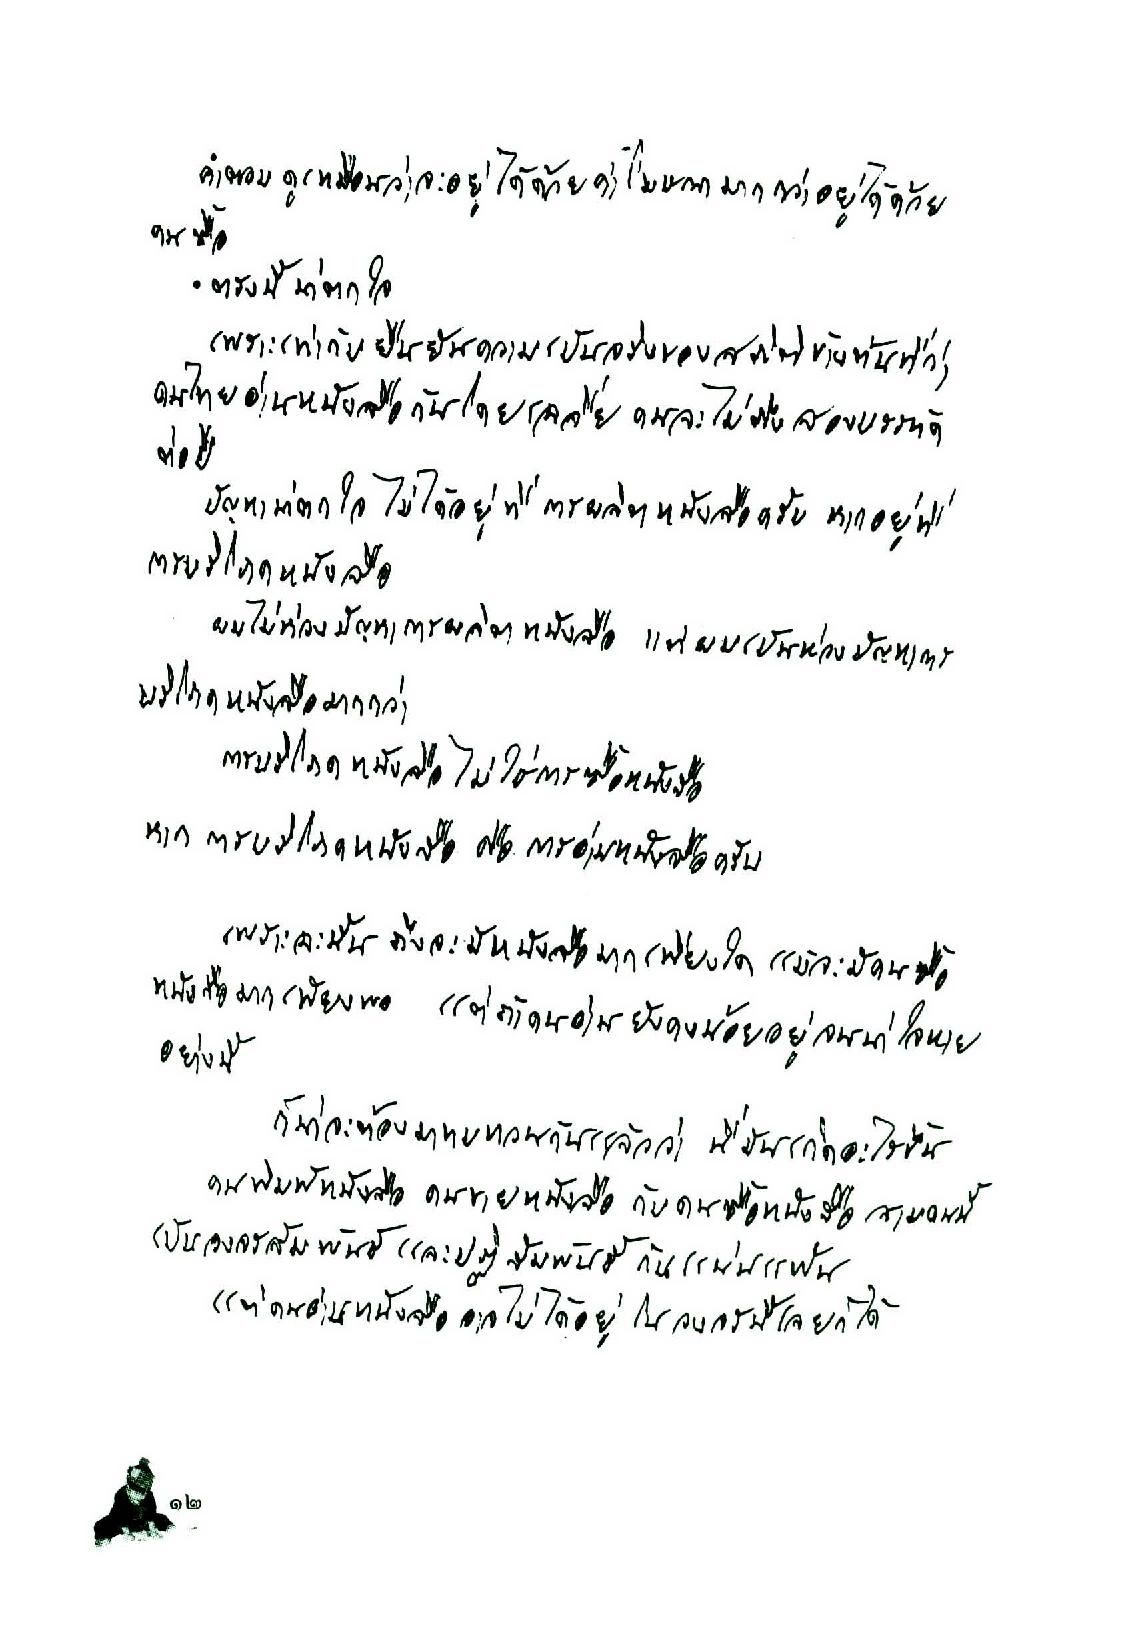 คำตอบ ดูเหมือนว่าจะอยู่ได้ด้วยค่าโฆษณามากกว่าอยู่ได้ด้วย
คนซื้อ
• ตรงนี้น่าตกใจ
เพราะเท่ากับยืนยันความเป็นจริงของสถิติข้างต้นที่ว่า
คนไทยอ่านหนังสือกันโดยเฉลี่ย คนละไม่ถึงสองบรรทัด
ต่อปี
ปัญหาน่าตกใจ ไม่ได้อยู่ที่การผลิตหนังสือครับ หากอยู่ที่
การบริโภคหนังสือ
ผมไม่ห่วงปัญหาการผลิตหนังสือ แต่ผมเป็นห่วงปัญหาการ
บริโภคหนังสือมากกว่า
การบริโภคหนังสือ ไม่ใช่การซื้อหนังสือ
หาก การบริโภคหนังสือ คือ การอ่านหนังสือครับ
เพราะฉะนั้น ถึงจะมีหนังสือมากเพียงใด แม้จะมีคนซื้อ
หนังสือมากเพียงพอ แต่ถ้าคนอ่านยังคงน้อยอยู่จนน่าใจหาย
อย่างนี้
ก็น่าจะต้องมาทบทวนกันแล้วว่า นี่มันเกิดอะไรขึ้น
คนพิมพ์หนังสือ คนขายหนังสือ กับคนซื้อหนังสือ สามคนนี้
เป็นวงจรสัมพันธ์และปฏิสัมพันธ์กันแน่นแฟ้น
แต่คนอ่านหนังสืออาจไม่ได้อยู่ในวงจรนี้เลยก็ได้
๑๒